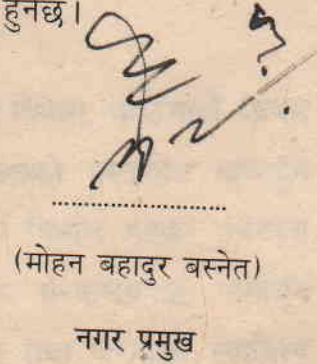 हुनेछ।
..............................
(मोहन बहादुर बस्नेत)
नगर प्रमुख